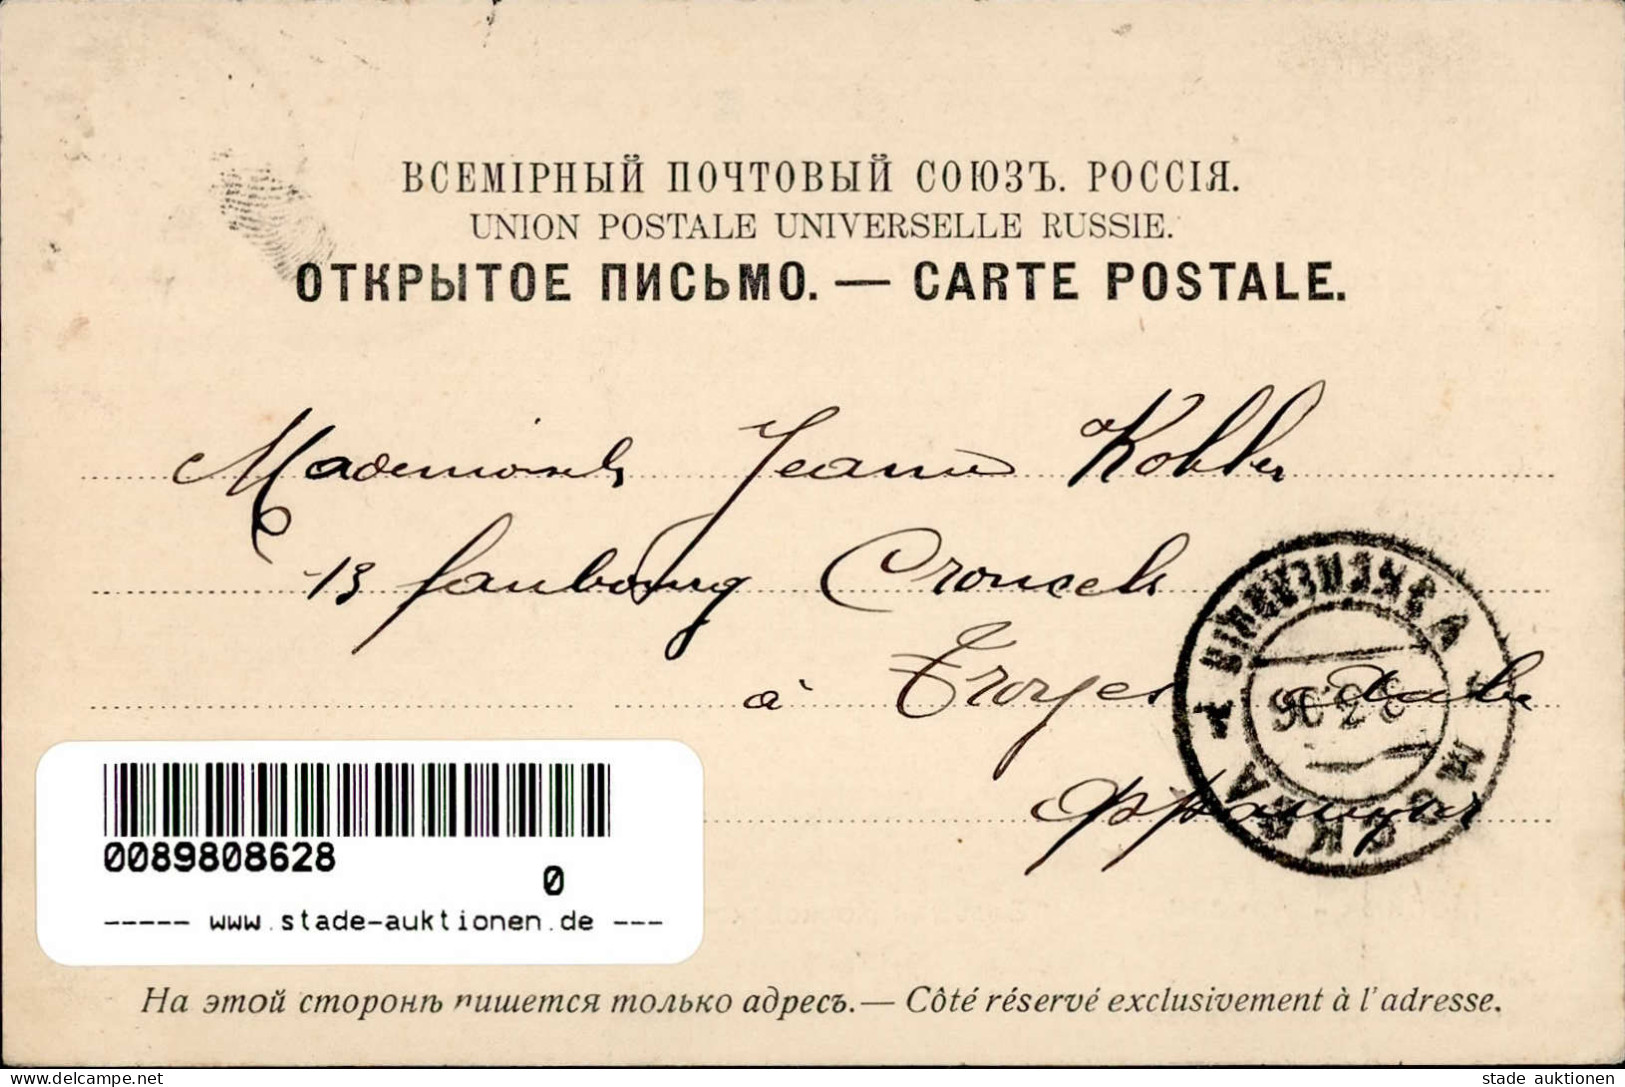 ВСЕМІРНЫЙ ПОЧТОВЫЙ СОЮЗЪ. РОССІЯ.
UNION POSTALE UNIVERSELLE RUSSIE.
ОТКРЫТОЕ ПИСЬМО. — CARTE POSTALE.
Mademoiselle Jeanne Kobler
13 faubourg Croncels
à Troyes Aube
МОСКВА
0089808628
0
----- www.stade-auktionen.de ---
На этой сторонѣ пишется только адресъ. — Côté réservé exclusivement à l'adresse.
www.delcampe.net
stade auktionen